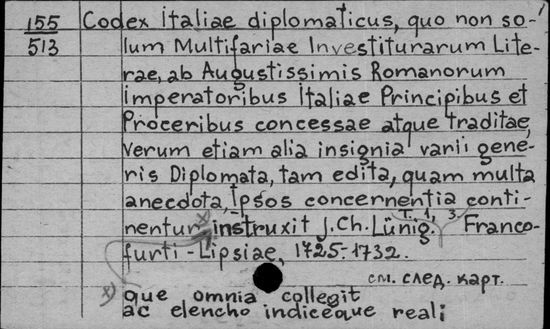 155
513
Codex Italiae diplomaticus, quo non so-
lum Multifariae Investiturarum Lite-
rae, ab Augustissimis Romanorum
imperatoribus Italiae Principibus et
Proceribus concessae atque traditae,
verum etiam alia insignia varii gene-
ris Diplomata, tam edita, quam multa
anecdota, Ipsos concernentia conti-
nentur x) instruxit J. Ch. Lünig. T. 1, 3. Franco-
furti-Lipsiae, 1725-1732.
см. след. карт.
x) que omnia collegit
ac elencho indiceque reali